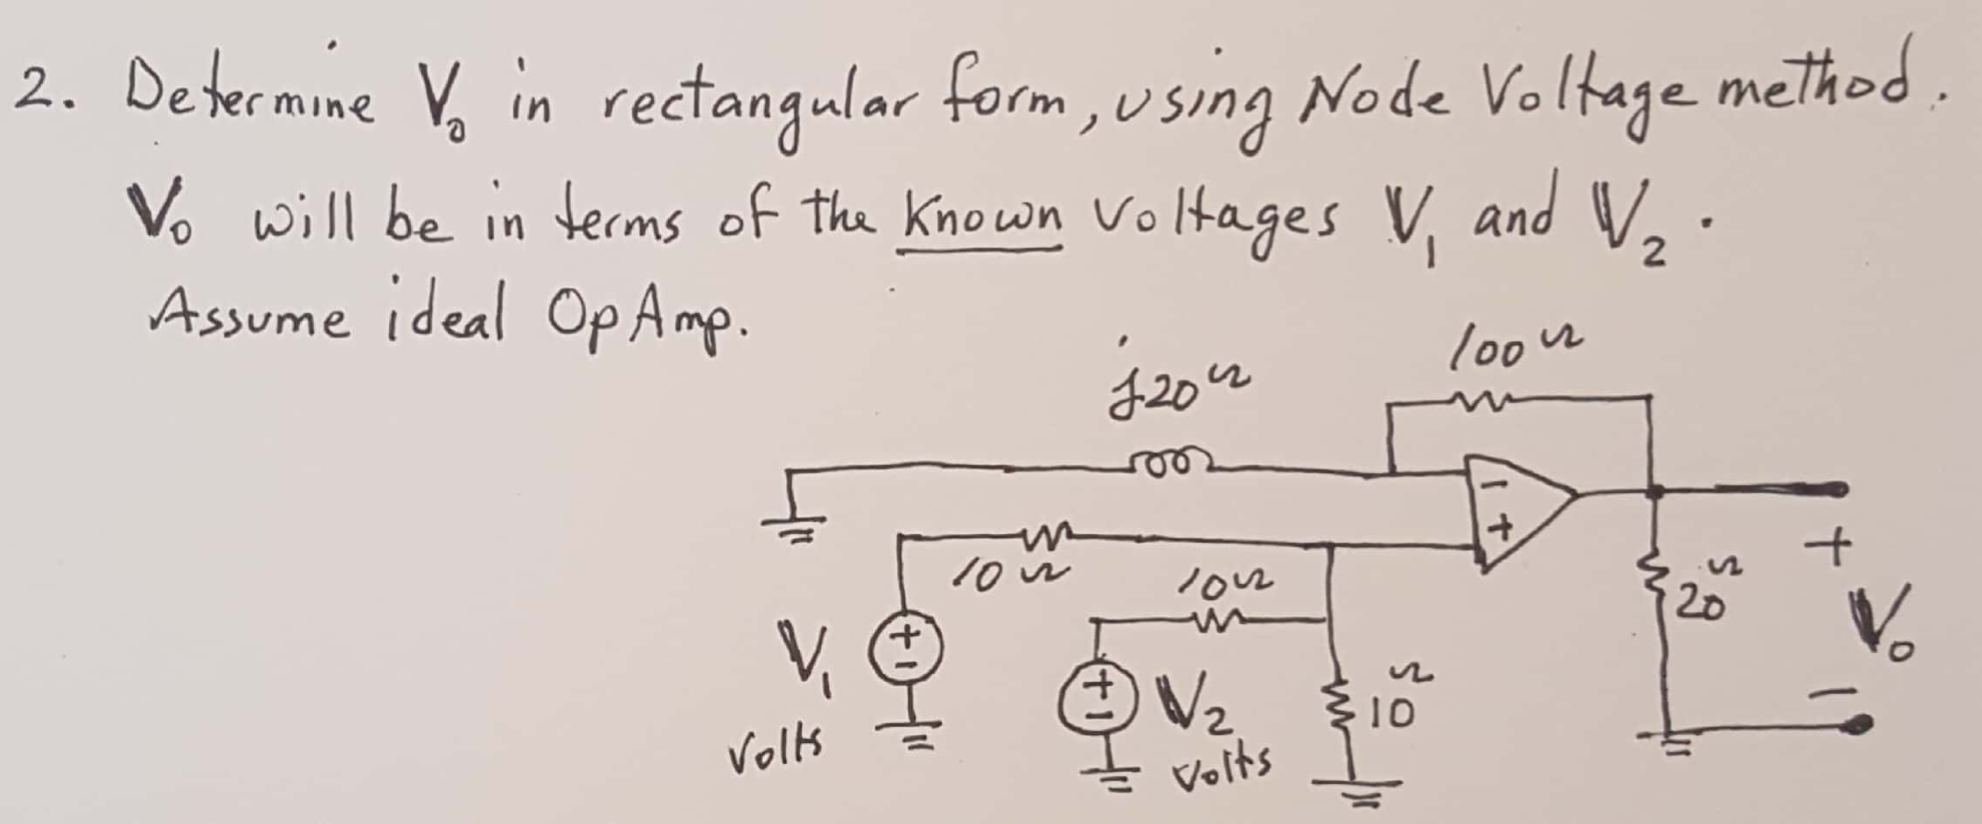 2. Determine V₀ in rectangular form, using Node Voltage method.
V₀ will be in terms of the known voltages V₁ and V₂.
Assume ideal OpAmp.
100 Ω
j20 Ω
-
+
10 Ω
10 Ω
20 Ω
+
V₀
-
V₁
volts
+
-
+
-
V₂
volts
10 Ω